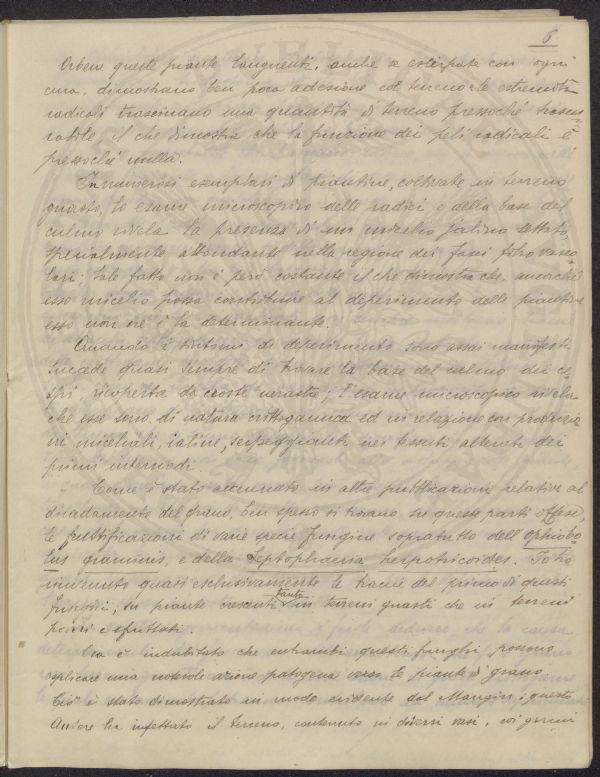 6
Orbene queste piante languenti, anche se estirpate con ogni
cura, dimostrano ben poca adesione col terreno e le estremità
radicali trascinano una quantità di terreno pressoché trascu=
rabile il che dimostra che la funzione dei peli radicali è
pressoché nulla.
In numerosi esemplari di piantine, coltivate in terreno
guasto, lo esame microscopico delle radici e della base del
culmo rivela la presenza di un micelio jalino settato,
specialmente abbondante nella regione dei fasci fibro vasco
lari; tale fatto non è però costante il che dimostra che, ancorché
esso micelio possa contribuire al deperimento delle piantine
esso non ne è la determinante.
Quando i sintomi di deperimento sono assai manifesti
succede quasi sempre di trovare la base del culmo dei ce
spi, ricoperta da croste nerastre; l'esame microscopico rivela
che esse sono di natura crittogamica ed in relazione con produzio
ni miceliali, ialine, serpeggianti nei tessuti alterati dei
primi internodi.
Come è stato accennato in altre pubblicazioni relative al
diradamento del grano, ben spesso si trovano su queste parti offese,
le fruttificazioni di varie specie fungine sopratutto dell'Ophiobo
lus graminis, e della Leptosphaeria herpotricoides. Io ho
rinvenuto quasi esclusivamente le tracce del primo di questi
funghi, su piante crescenti tanto in terreni guasti che in terreni
poveri e sfruttati.
Ora è indubitato che entrambi questi funghi possono
esplicare una notevole azione patogena verso le piante di grano.
Ciò è stato dimostrato in modo evidente dal Mangin; questo
Autore ha infettato il terreno, contenuto in diversi vasi, coi germi